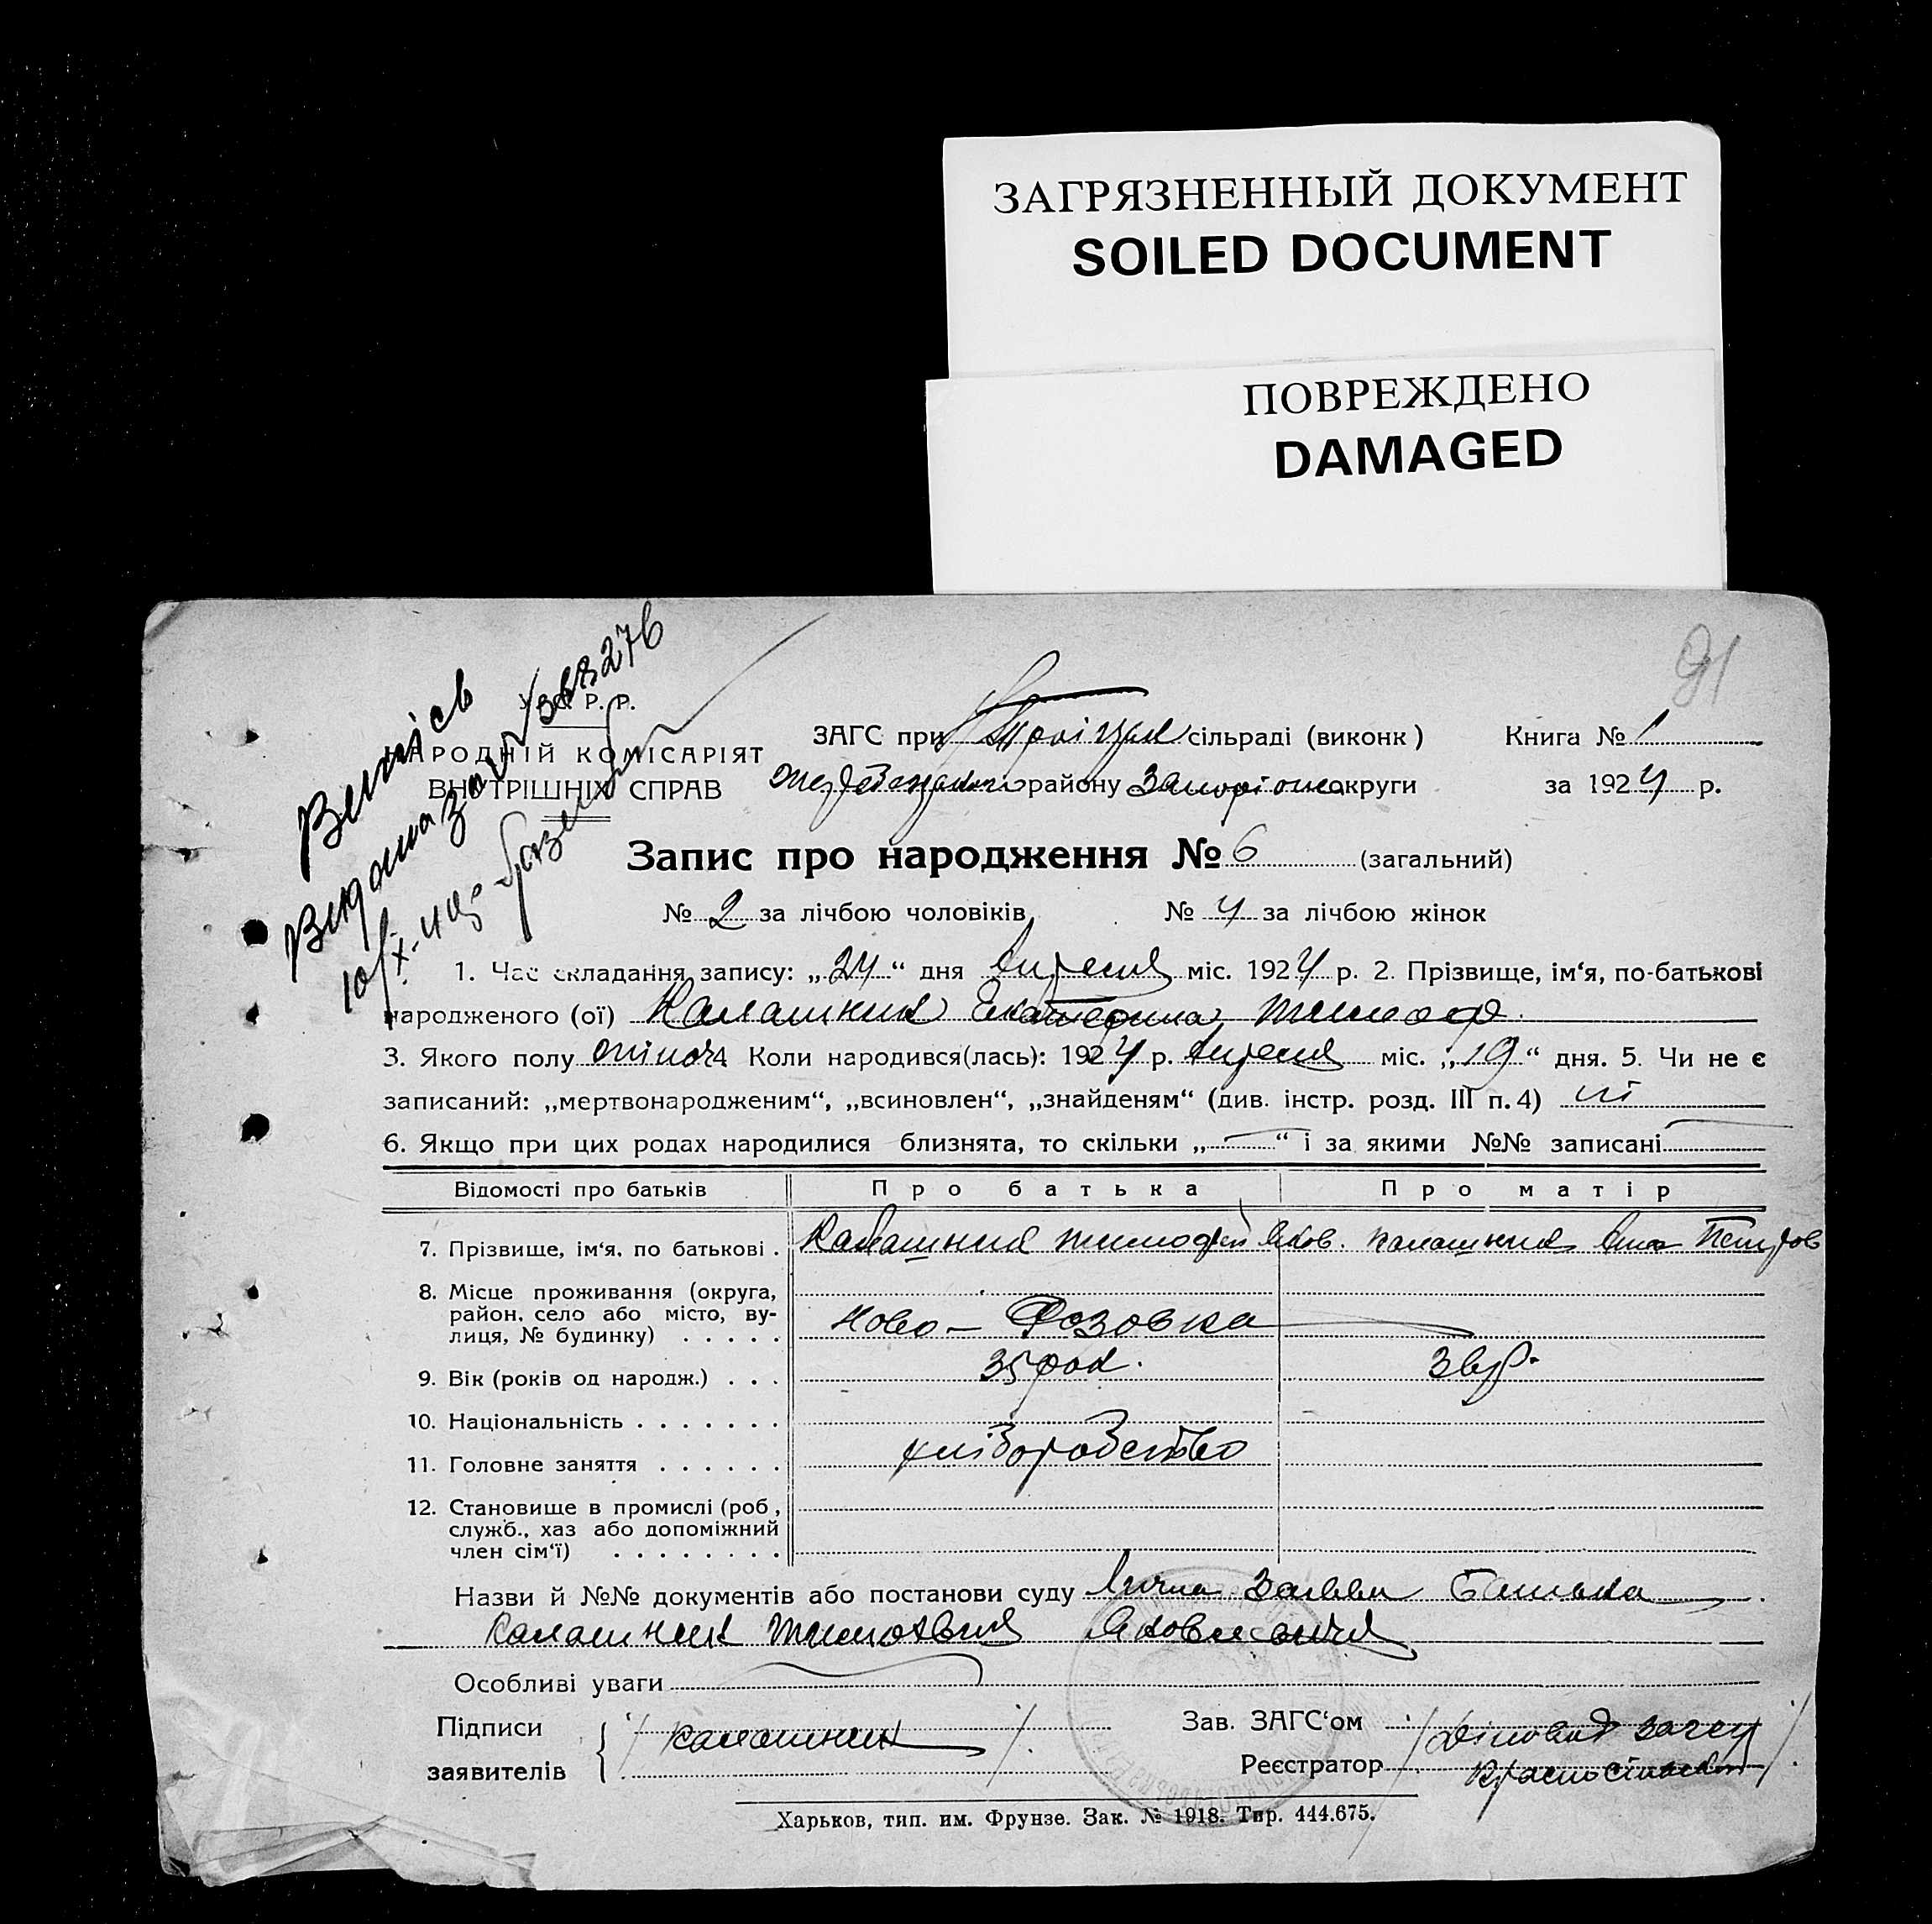 ЗАГРЯЗНЕННЫЙ ДОКУМЕНТ
SOILED DOCUMENT
ПОВРЕЖДЕНО
DAMAGED
91
Випись
Видана
У.С.Р.Р.
НАРОДНІЙ КОМІСАРІЯТ
ВНУТРІШНІХ СПРАВ
ЗАГС при сільраді (виконк) Книга № 1
району округи за 1924 р.
Запис про народження № 6 (загальний)
№ 2 за лічбою чоловіків № 4 за лічбою жінок
1. Час складання запису: „24“ дня міс. 1924 р. 2. Прізвище, ім‘я, по-батькові
народженого (ої) Калашник Екатерина Тимоф.
3. Якого полу 4. Коли народився(лась): 1924 р. міс. „19“ дня. 5. Чи не є
записаний: „мертвонародженим“, „всиновлен“, „знайденям“ (див. інстр. розд. III п. 4) ні
6. Якщо при цих родах народилися близнята, то скільки „—“ і за якими №№ записані
Відомості про батьків Про батька Про матір
7. Прізвище, ім‘я, по батькові . Калашник Тимофій Яков. Калашник Анна Петров
8. Місце проживання (округа,
район, село або місто, ву-
лиця, № будинку) . . . . . Ново - Розовка
9. Вік (років од народж.) . . . 35 рок.
10. Національність . . . . . . .
11. Головне заняття . . . . . . хліборобство
12. Становище в промислі (роб.,
служб., хаз або допоміжний
член сім‘ї) . . . . . . . .
Назви й №№ документів або постанови суду Лична Заява Батька
Калашник Яковлевича
Особливі уваги
Підписи Калашник Зав. ЗАГС‘ом
заявителів Реєстратор
Харьков, тип. им. Фрунзе. Зак. № 1918. Тир. 444.675.